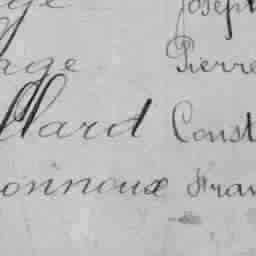 age Joseph
age Pierre
llard Const
onnoux Fran